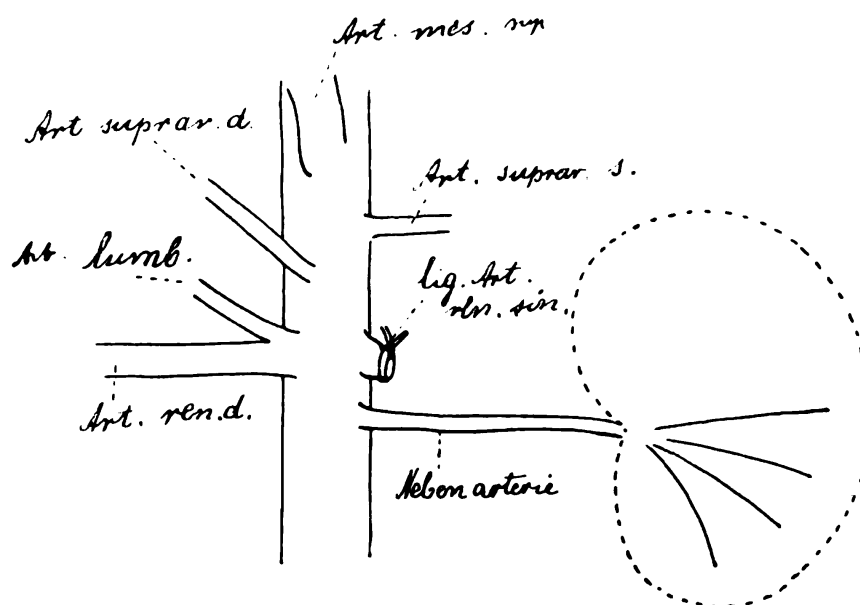 Art. mes. sup
Art suprar. d.
Art. suprar s.
Art. lumb.
lig. Art.
ren. sin.
Art. ren. d.
Nebenarterie